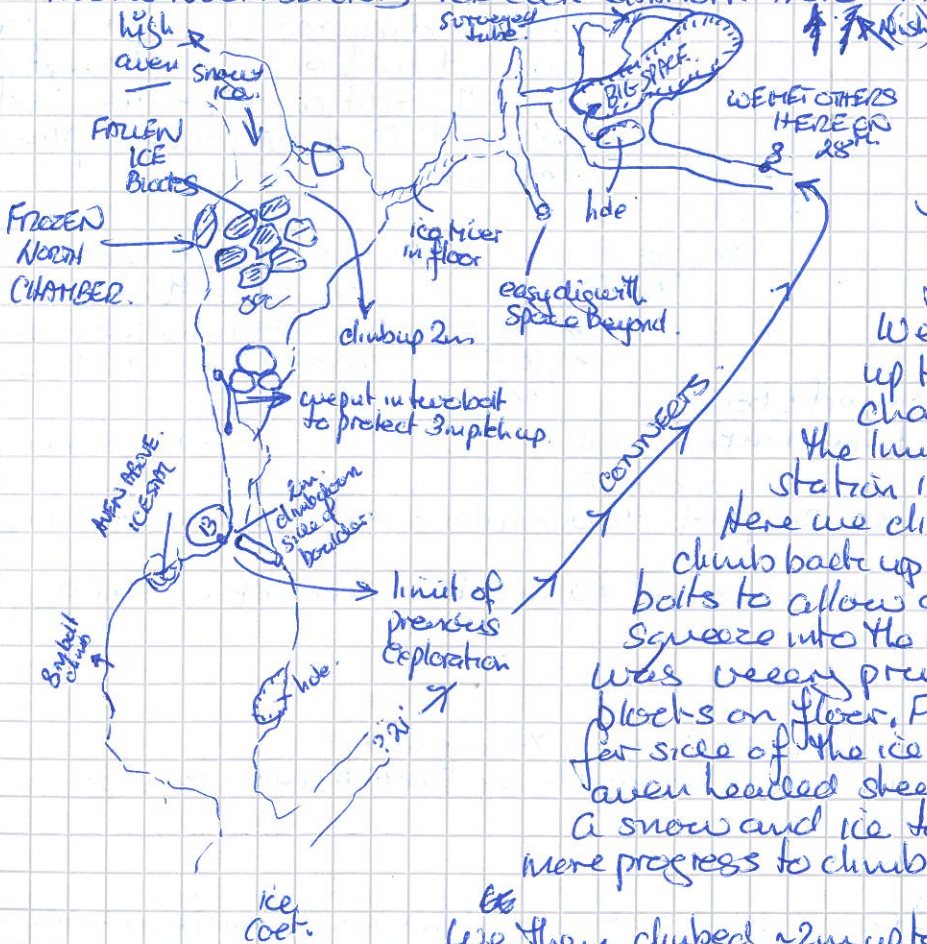 surveyed
tube.
high
aven
snow
ice.
FALLEN
ICE
Blocks
FROZEN
NORTH
CHAMBER.
BIG SPACE.
WE MET OTHERS
HERE ON
28th.
hole
ice river
in floor
easy dig with
Space Beyond.
climb up 2m
we put in two bolt
to protect 3m pitch up.
CONNECTS.
AVEN ABOVE
ICE STAL
13
2m
climb down
side of
boulder.
limit of
previous
Exploration
8m bolt
climb
hole.
??
We
up t
cha
The lim
station i
Here we cli
climb back up
bolts to allow
Squeeze into the
was veeery pre
blocks on floor. F
far side of the ice
aven headed stee
A snow and ice t
more progress to climb
ice
Coet.
We then climbed ~2m up to